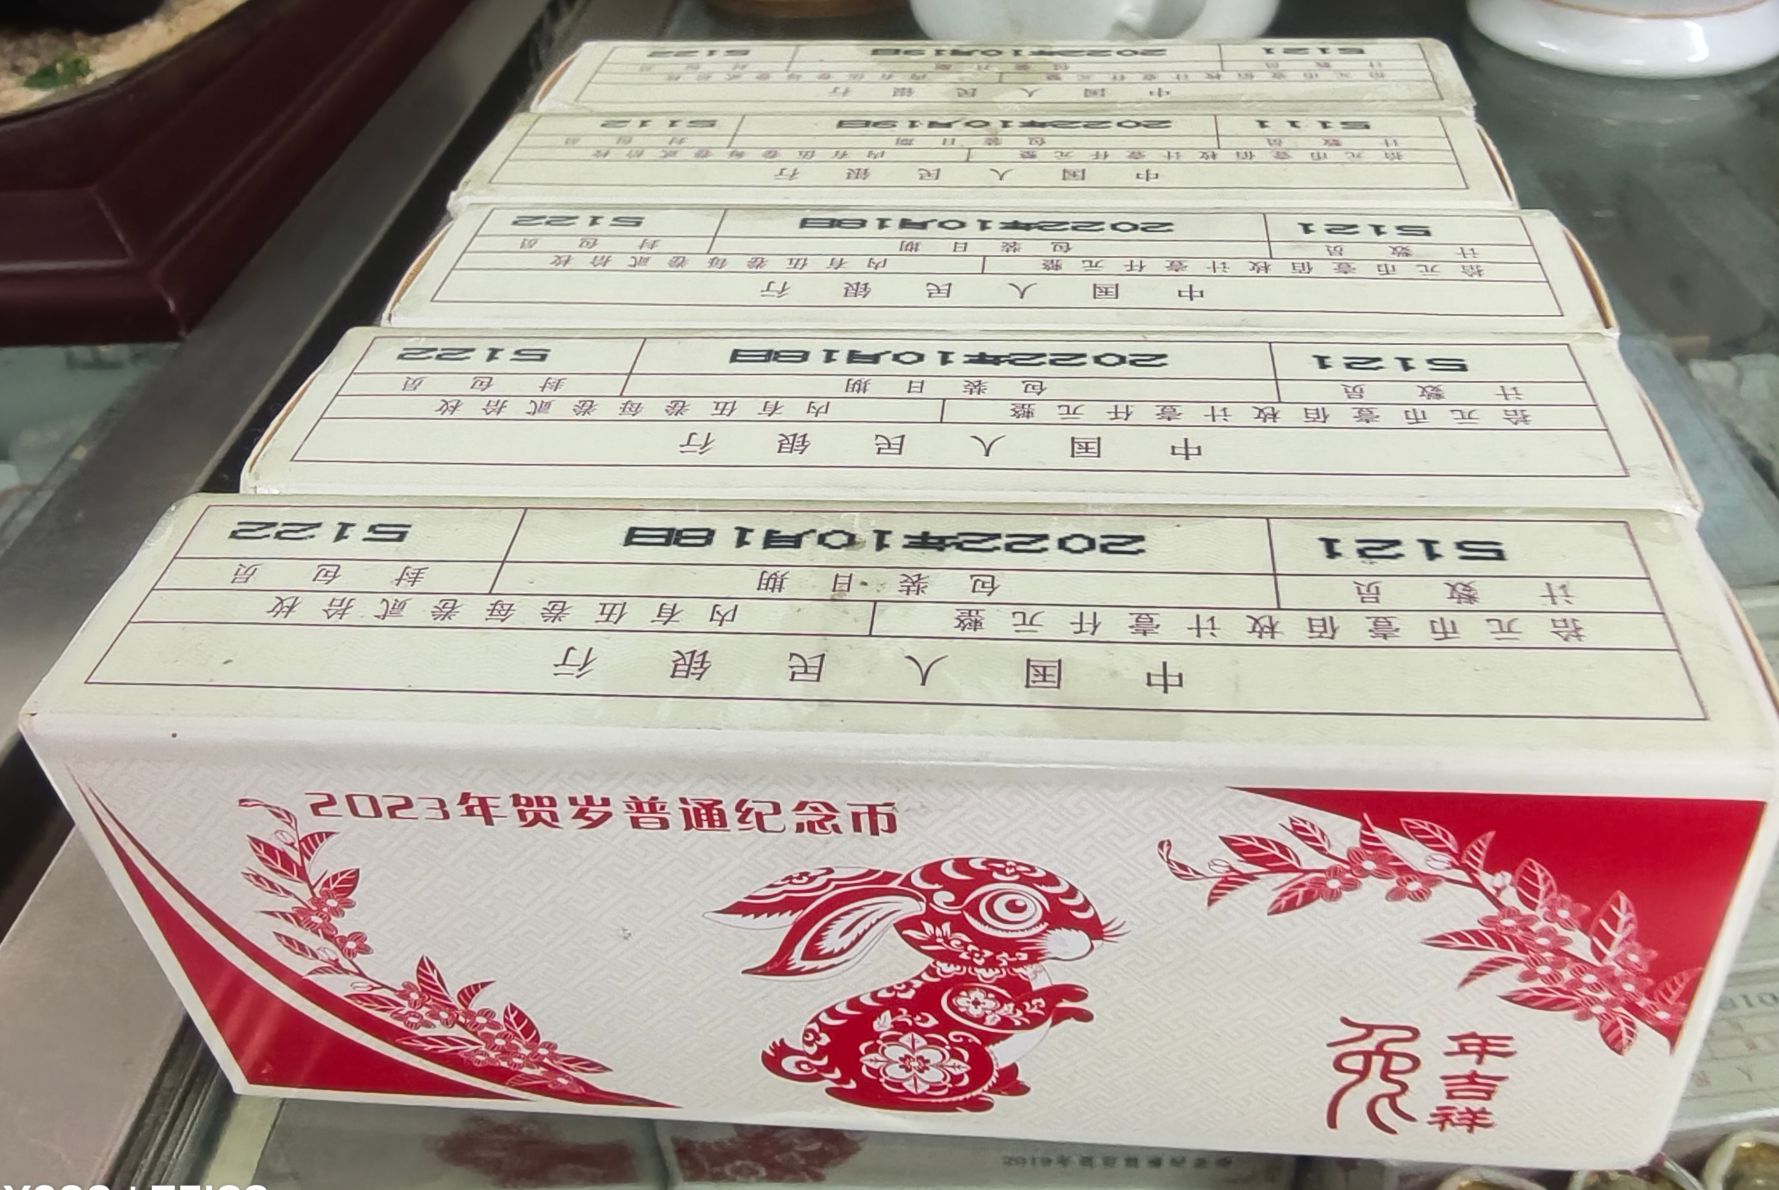 中国人民银行
拾元币壹佰枚计壹仟元整 内有伍卷每卷贰拾枚
计数员 包装日期 封包员
5121 2022年10月19日 5122
中国人民银行
拾元币壹佰枚计壹仟元整 内有伍卷每卷贰拾枚
计数员 包装日期 封包员
5111 2022年10月19日 5112
中国人民银行
拾元币壹佰枚计壹仟元整 内有伍卷每卷贰拾枚
计数员 包装日期 封包员
5121 2022年10月18日 5122
中国人民银行
拾元币壹佰枚计壹仟元整 内有伍卷每卷贰拾枚
计数员 包装日期 封包员
5121 2022年10月18日 5122
中国人民银行
拾元币壹佰枚计壹仟元整 内有伍卷每卷贰拾枚
计数员 包装日期 封包员
5121 2022年10月18日 5122
2023年贺岁普通纪念币
兔年吉祥